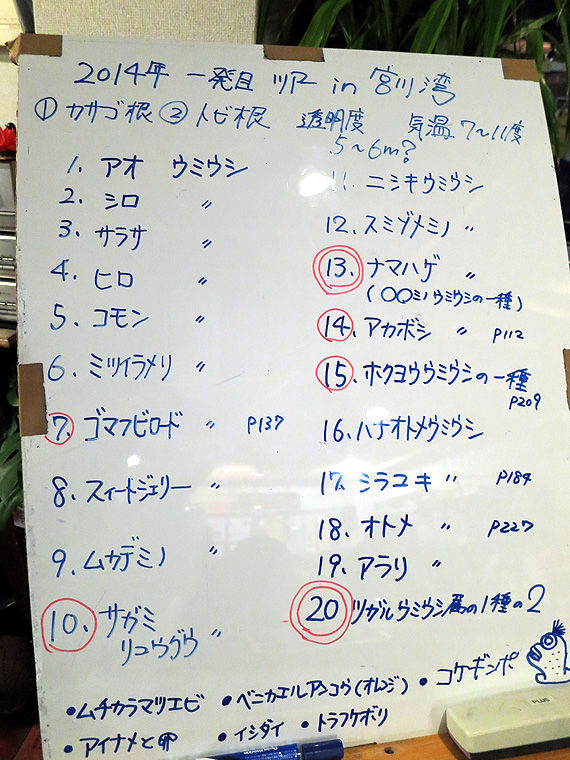 2014年 一発目 ツアー in 宮川湾
① カサゴ根 ② トビ根 透明度 5〜6m? 気温 7〜11度
1. アオ ウミウシ
2. シロ 〃
3. サラサ 〃
4. ヒロ 〃
5. コモン 〃
6. ミツイラメリ 〃
7. ゴマフビロード 〃 P137
8. スイートジェリー 〃
9. ムカデミノ 〃
10. サガミ
リュウグウ 〃
11. ニシキウミウシ
12. スミゾメミノ 〃
13. ナマハゲ 〃
(〇〇ミノウミウシの一種)
14. アカボシ 〃 P112
15. ホクヨウウミウシの一種
P209
16. ハナオトメウミウシ
17. シラユキ 〃 P184
18. オトメ 〃 P227
19. アラリ 〃
20 ツガルウミウシ属の1種の2
・ムチカラマツエビ ・ベニカエルアンコウ(オレンジ) ・コケギンポ
・アイナメと卵 ・イシダイ ・トラフケボリ
PLUS